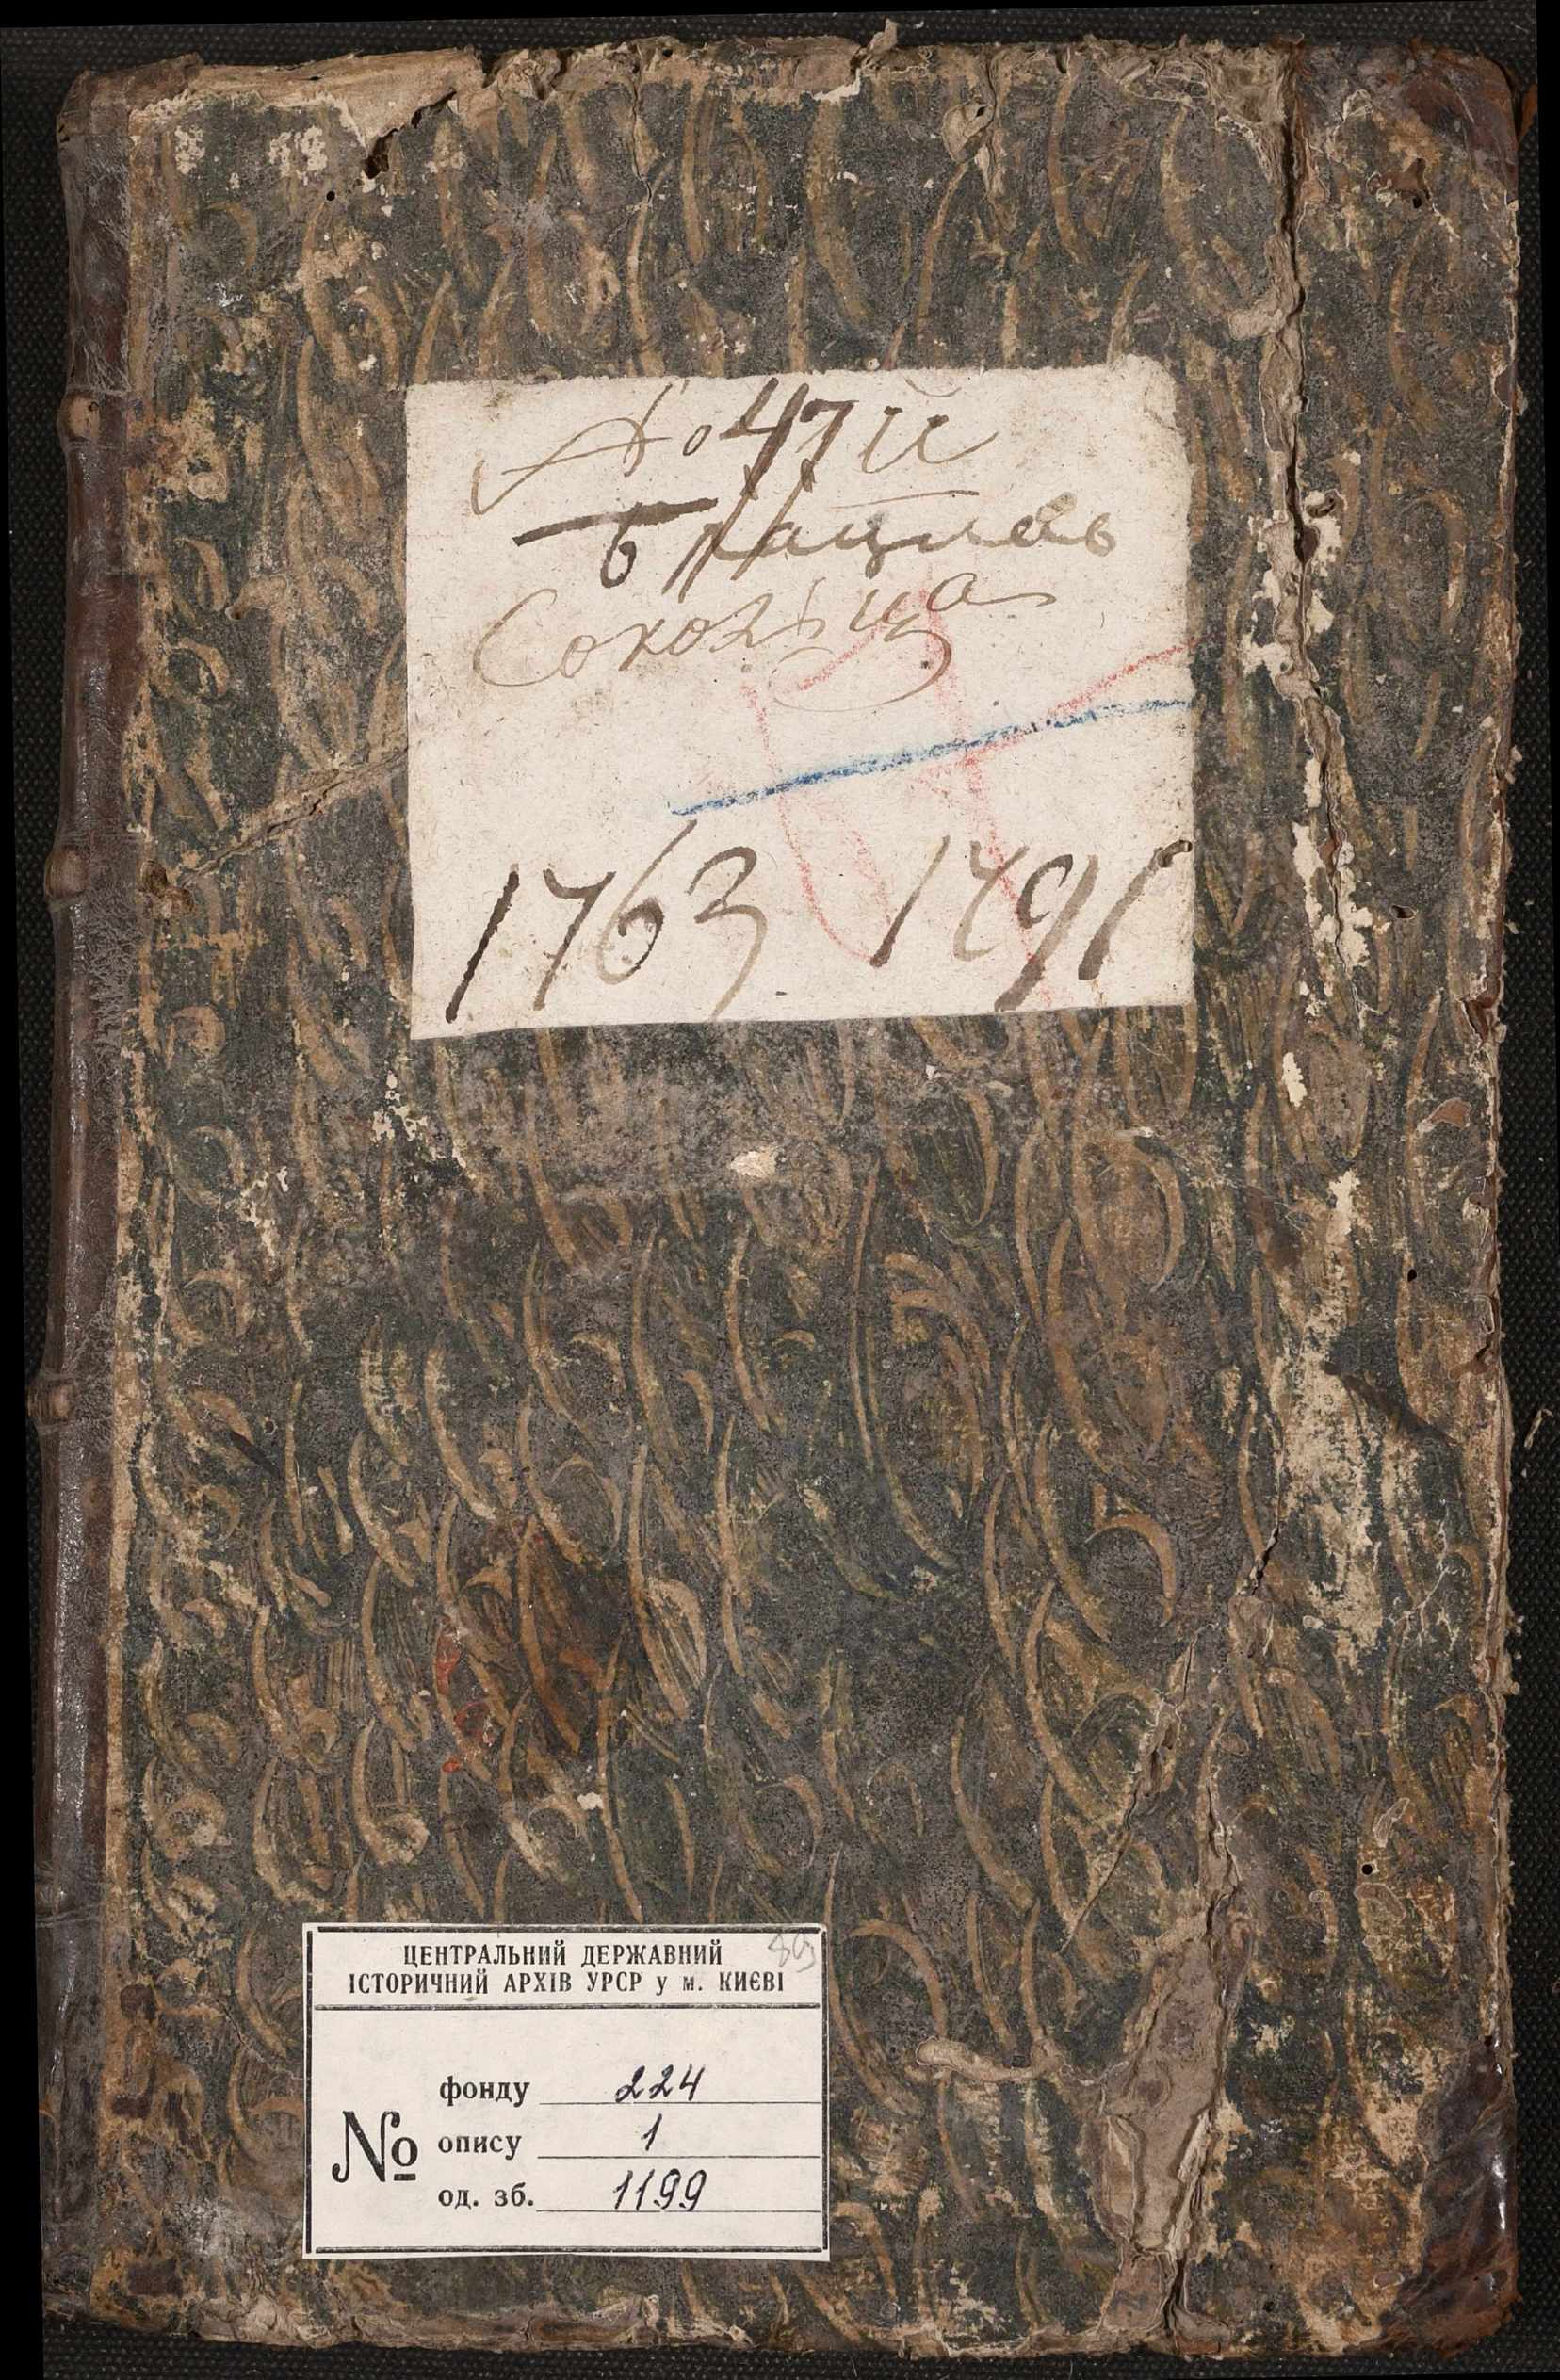 № 47й
Брацлавъ
Сокольца
1763 1791
ЦЕНТРАЛЬНИЙ ДЕРЖАВНИЙ
ІСТОРИЧНИЙ АРХІВ УРСР у м. КИЄВІ
№
фонду 224
опису 1
од. зб. 1199